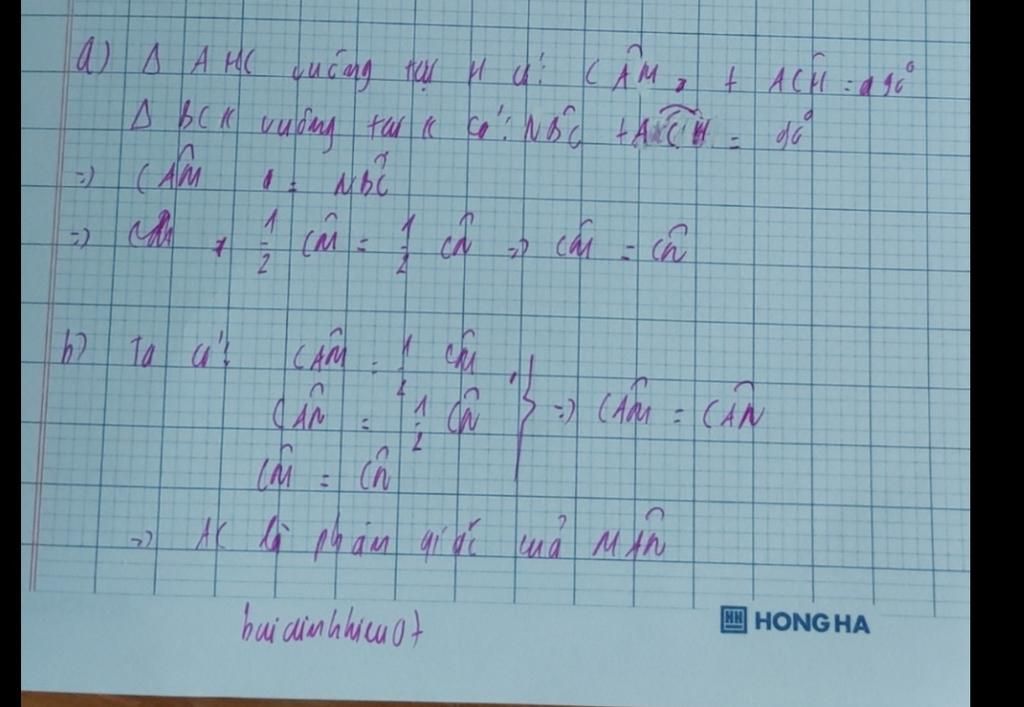 a) Δ AHC vuông tại H có: CÂM + ACĤ = 90°
Δ BCK vuông tại K có: NB̂C + AĈH = 90°
=> CÂM = NB̂C
=> 1/2 CM̂ = 1/2 CN̂ => CM̂ = CN̂
b) Ta có: CÂM = 1/2 CM̂
CÂN = 1/2 CN̂ } => CÂM = CÂN
CM̂ = CN̂
=> AC là phân giác của MÂN
buidinhhieu01
HH HONG HA